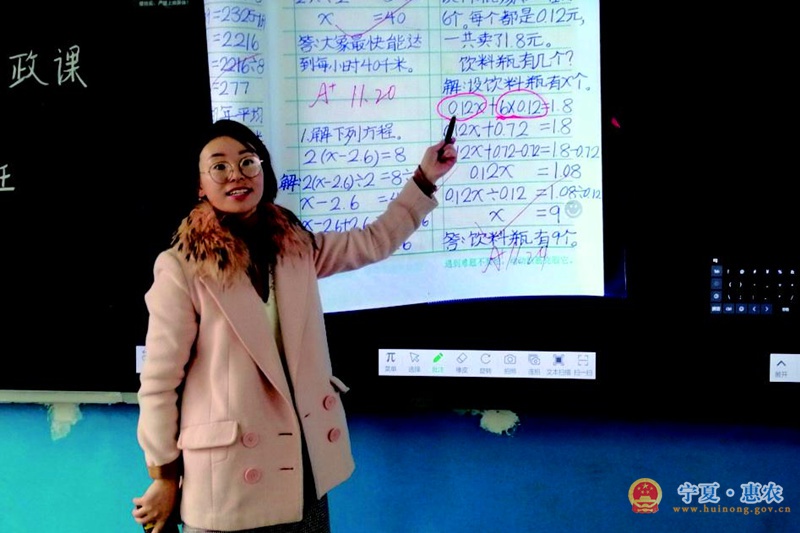 政课
王
=2325
=2216
=2216÷8
=277
年平均
x =40
答:大家最快能达
到每小时40千米。
A+ 11.20
1.解下列方程。
2(x-2.6)=8
解:2(x-2.6)÷2=8÷
x-2.6 =4
x-2.6+2.6
6个。每个都是0.12元,
一共卖了1.8元。
饮料瓶有几个?
解:设饮料瓶有x个。
0.12x+6×0.12=1.8
0.12x+0.72 =1.8
0.12x+0.72-0.72=1.8-0.72
0.12x =1.08
0.12x÷0.12 =1.08÷0.12
x =9
答:饮料瓶有9个。
A+ 11.20
π
菜单
选择
批注
橡皮
旋转
拍照
连拍
文本扫描
扫一扫
展开
宁夏·惠农
www.huinong.gov.cn